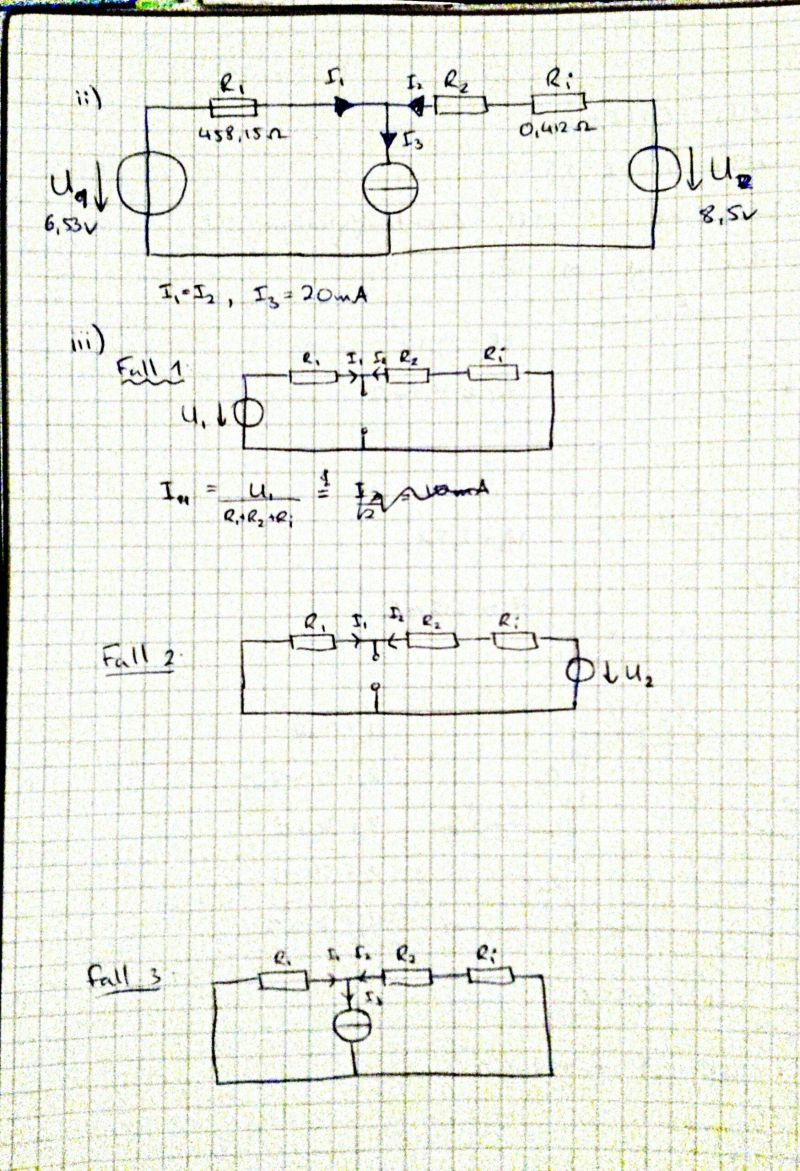 ii) R₁ I₁ I₂ R₂ Ri
458,15Ω 0,412Ω
I₃
Uq1 U2
6,53V 8,5V
I₁=I₂, I₃=20mA
iii)
Fall 1 R₁ I₁ I₂ R₂ Ri
U₁
I₁₁ = U₁/(R₁+R₂+Ri) =
Fall 2 R₁ I₁ I₂ R₂ Ri
U₂
Fall 3 R₁ I₁ I₂ R₂ Ri
I₃